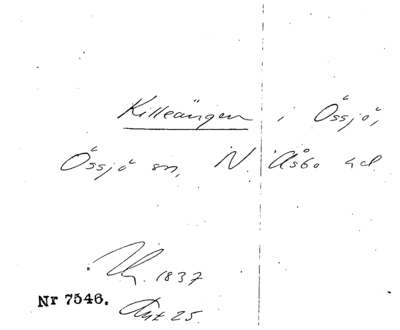 Killeängen i Össjö,
Össjö sn, N. Åsbo hd
1837
Nr 7546.
Akt 25.